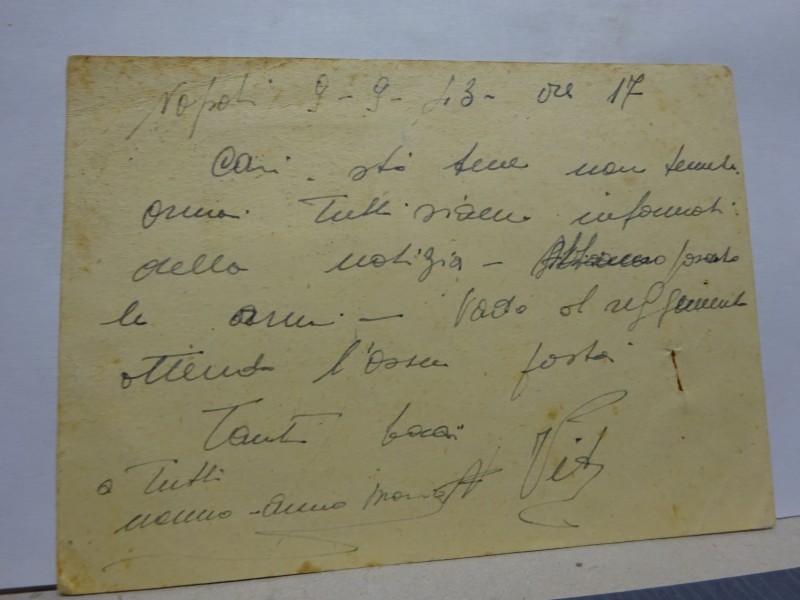 Napoli 9-9-43- ore 17
Cari. sto bene non temete.
ormai tutti siamo informati
della notizia - posato
le armi. - Vado al reggimento
attendo
Tanti baci
a Tutti Vito
nonno - anna maria